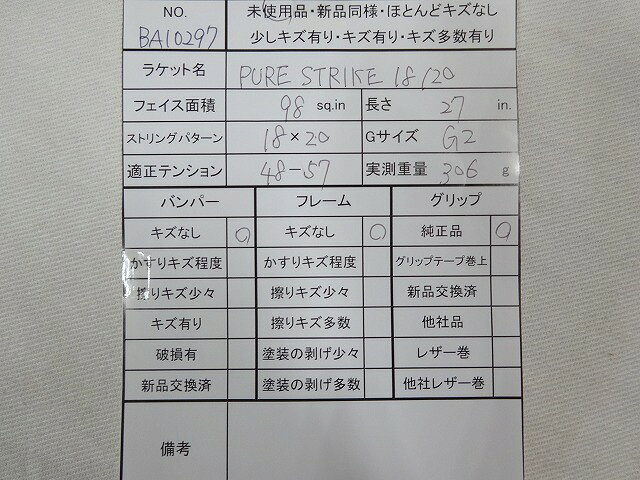 NO. 未使用品・新品同様・ほとんどキズなし
BA10297 少しキズ有り・キズ有り・キズ多数有り
ラケット名 PURE STRIKE 18/20
フェイス面積 98 sq.in 長さ 27 in.
ストリングパターン 18×20 Gサイズ G2
適正テンション 48-57 実測重量 306 g
バンパー フレーム グリップ
キズなし ○ キズなし ○ 純正品 ○
かすりキズ程度 かすりキズ程度 グリップテープ巻上
擦りキズ少々 擦りキズ少々 新品交換済
キズ有り 擦りキズ多数 他社品
破損有 塗装の剥げ少々 レザー巻
新品交換済 塗装の剥げ多数 他社レザー巻
備考